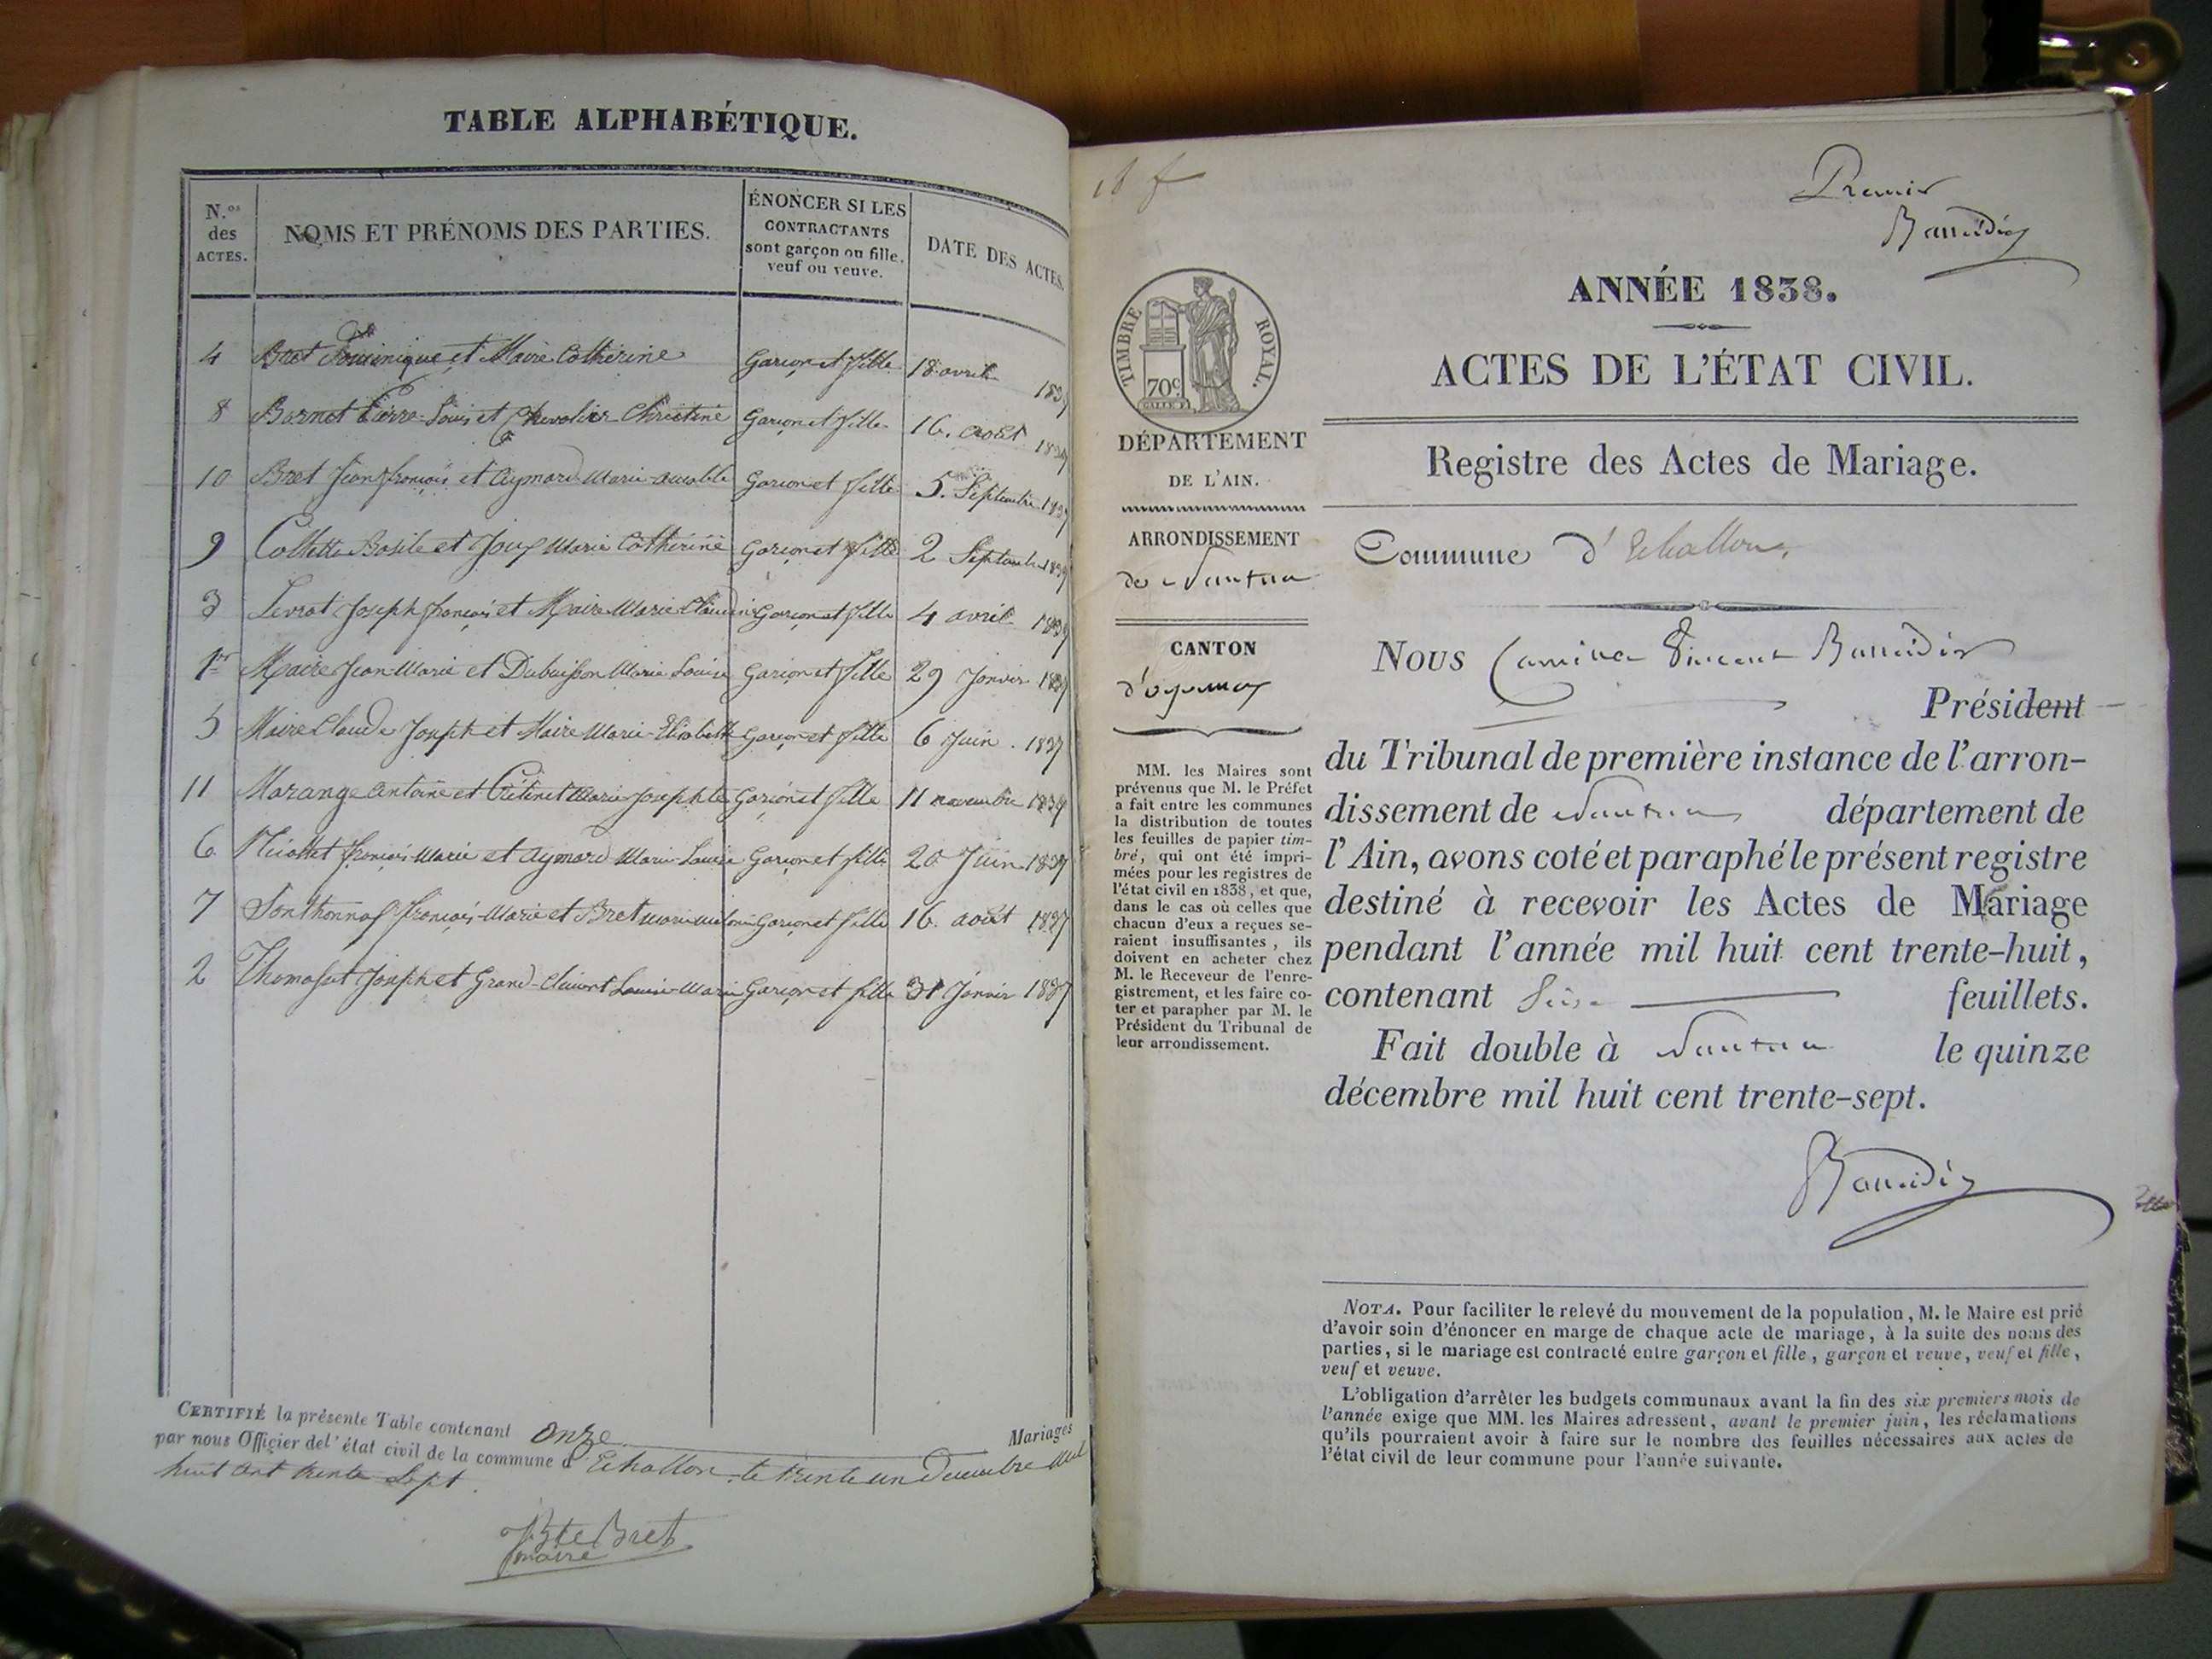 TABLE ALPHABÉTIQUE.
N.os des ACTES.
NOMS ET PRÉNOMS DES PARTIES.
ÉNONCER SI LES
CONTRACTANTS
sont garçon ou fille,
veuf ou veuve.
DATE DES ACTES.
4 Bret Dominique et Maire Catherine Garçon et fille 18 avril 1837
8 Bornet Pierre-Louis et Chevalier Christine Garçon et fille 16. août 1837
10 Bret Jean françois et Aymard Marie-amable Garçon et fille 5. Septembre 1837
9 Collette Basile et Joux Marie Catherine Garçon et fille 2 Septembre 1837
3 Levrat Joseph françois et Maire Marie Claudine Garçon et fille 4 avril 1837
1er Maire Jean-Marie et Dubuisson Marie Louise Garçon et fille 29 Janvier 1837
5 Maire Claude Joseph et Maire Marie-Elisabeth Garçon et fille 6 Juin. 1837
11 Marange antoine et Crétinet Marie Josephte Garçon et fille 11 novembre 1837
6 françois Marie et Aymard Marie Louise Garçon et fille 20 Juin 1837
7 Sonthonnax françois-Marie et Bret Marie Garçon et fille 16. août 1837
2 Thomasset Joseph et Grand-Clément Louise-Marie Garçon et fille 31 Janvier 1837
CERTIFIÉ la présente Table contenant onze Mariages
par nous Officier de l'état civil de la commune d'Echallon, le trente un Decembre mil
huit cent trente Sept.
JBte Bret
maire
16 f
Premier
TIMBRE ROYAL.
70c
DÉPARTEMENT
DE L'AIN.
ARRONDISSEMENT
de Nantua
CANTON
d'oyonnax
MM. les Maires sont
prévenus que M. le Préfet
a fait entre les communes
la distribution de toutes
les feuilles de papier tim-
bré, qui ont été impri-
mées pour les registres de
l'état civil en 1838, et que,
dans le cas où celles que
chacun d'eux a reçues se-
raient insuffisantes, ils
doivent en acheter chez
M. le Receveur de l'enre-
gistrement, et les faire co-
ter et parapher par M. le
Président du Tribunal de
leur arrondissement.
ANNÉE 1838.
ACTES DE L'ÉTAT CIVIL.
Registre des Actes de Mariage.
Commune d'Echallon,
Nous Camille Vincent
Président
du Tribunal de première instance de l'arron-
dissement de Nantua département de
l'Ain, avons coté et paraphé le présent registre
destiné à recevoir les Actes de Mariage
pendant l'année mil huit cent trente-huit,
contenant Seize feuillets.
Fait double à Nantua le quinze
décembre mil huit cent trente-sept.
NOTA. Pour faciliter le relevé du mouvement de la population, M. le Maire est prié
d'avoir soin d'énoncer en marge de chaque acte de mariage, à la suite des noms des
parties, si le mariage est contracté entre garçon et fille, garçon et veuve, veuf et fille,
veuf et veuve.
L'obligation d'arrêter les budgets communaux avant la fin des six premiers mois de
l'année exige que MM. les Maires adressent, avant le premier juin, les réclamations
qu'ils pourraient avoir à faire sur le nombre des feuilles nécessaires aux actes de
l'état civil de leur commune pour l'année suivante.